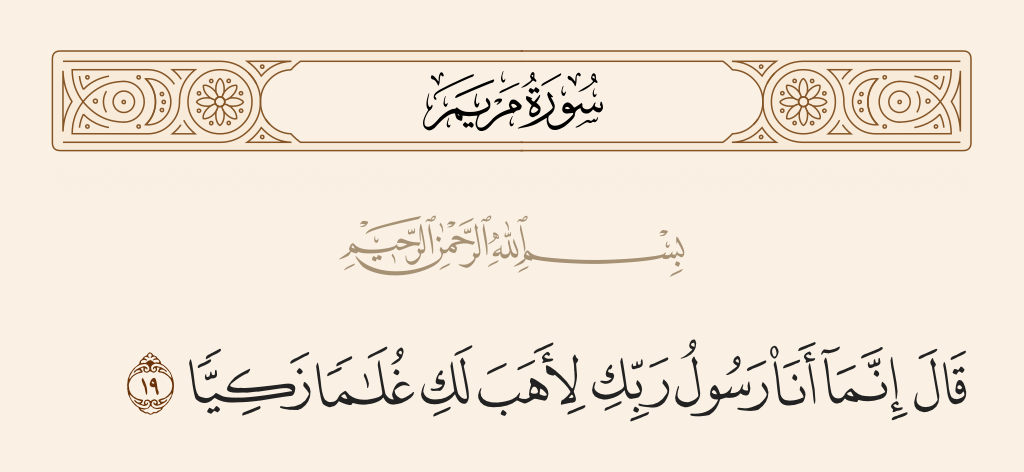 سُورَةُ مَرْيَمَ
بِسْمِ ٱللَّهِ ٱلرَّحْمَٰنِ ٱلرَّحِيمِ
قَالَ إِنَّمَآ أَنَا۠ رَسُولُ رَبِّكِ لِأَهَبَ لَكِ غُلَٰمًا زَكِيًّا ١٩